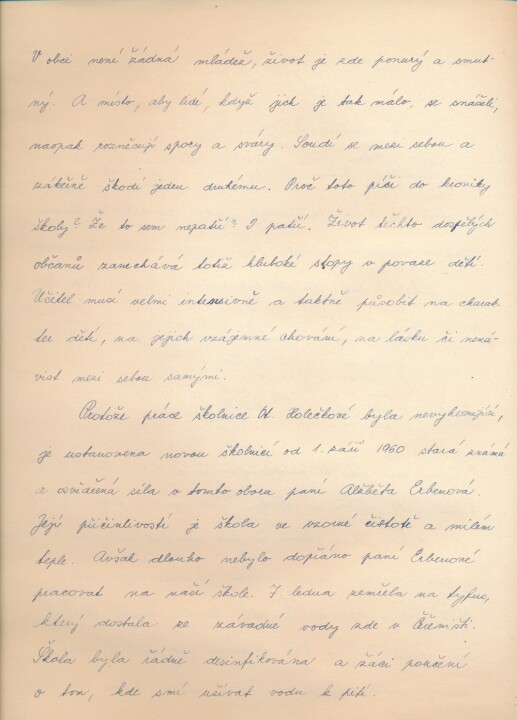 V obci není žádná mládež, život je zde ponurý a smut-
ný. A místo, aby lidé, když jich je tak málo, se snášeli,
naopak rozněcují spory a sváry. Soudí se mezi sebou a
zákeřně škodí jeden druhému. Proč toto píši do kroniky
školy? Že to sem nepatří? I patří. Život těchto dospělých
občanů zanechává totiž hluboké stopy v povaze dětí.
Učitel musí velmi intensivně a taktně působit na charak
ter dětí, na jejich vzájemné chování, na lásku či nená-
vist mezi sebou samými.
Protože práce školnice Holečkové byla nevyhovující,
je ustanovena novou školnicí od 1. září 1960 stará známá
a osvědčená síla v tomto oboru paní Alžběta Erbenová.
Její přičinlivostí je škola ve vzorné čistotě a milém
teple. Avšak dlouho nebylo dopřáno paní Erbenové
pracovat na naší škole. 7. ledna zemřela na tyfus,
který dostala ze závadné vody zde v
Škola byla řádně desinfikována a žáci poučeni
o tom, kde smí užívat vodu k pití.